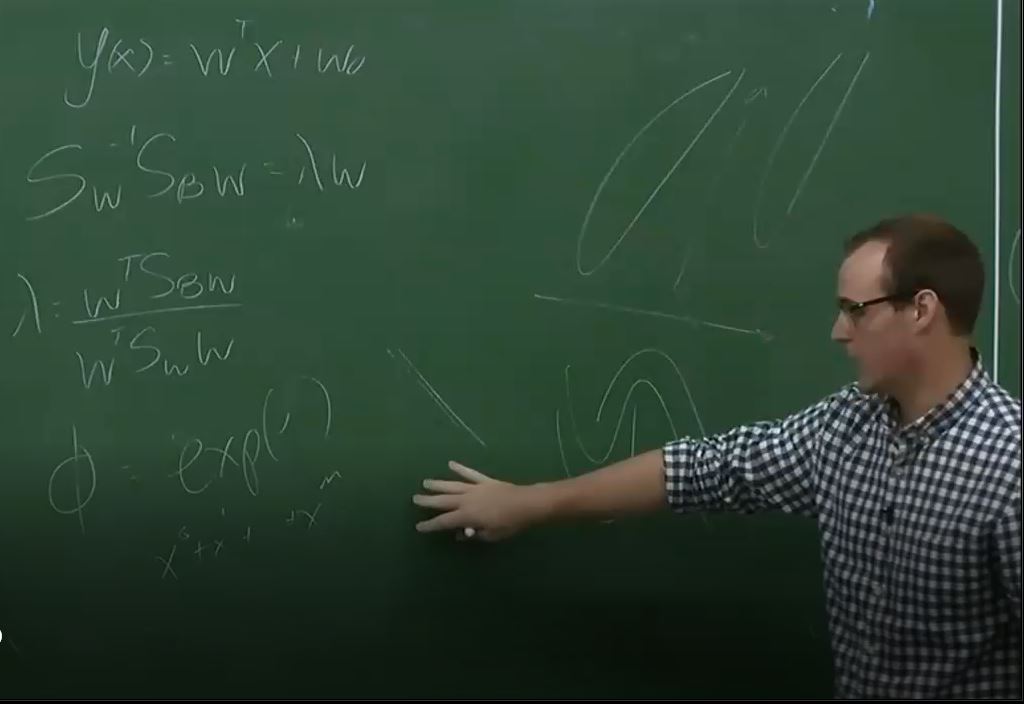 y(x) = wᵀx + w₀
S_W⁻¹ S_B w = λw
λ = wᵀS_B w / wᵀS_W w
ϕ = exp( , )
x⁰ + x¹ + +xᵐ